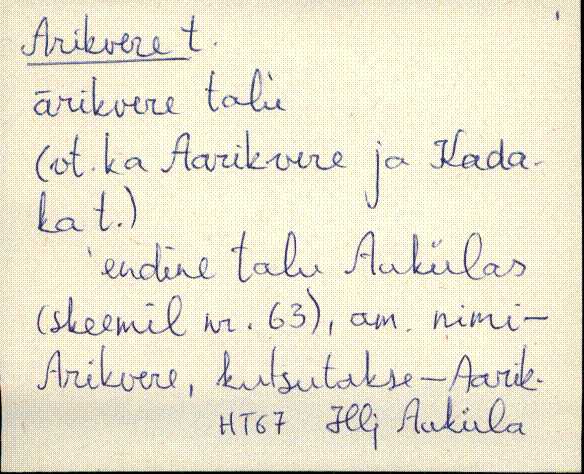 Arikvere t.
ārikvere talu
(vt. ka Aarikvere ja Kada-
ka t.)
'endine talu Aukülas
(skeemil nr. 63), am. nimi-
Arikvere, kutsutakse-Aarik.
HT67 Hlj Auküla